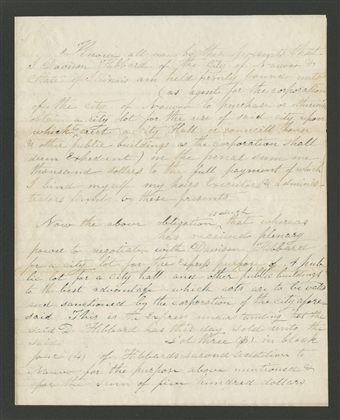 Know all men by these presents that
I Davison Hibbard of the City of Nauvoo &
State of Illinois am held firmly bound unto
(as agent for the corporation
of the city of Nauvoo to purchase or otherwise
obtain a city lot for the use of said city upon
which to erect a City Hall, or council house
& other public buildings as the corporation shall
deem expedient) in the penal sum one
thousand dollars to the full payment of which
I bind myself my heirs executors & adminis-
trators firmly by these presents
Now the above obligation is such that whereas
has plenary
power to negotiate with Davison Hibbard
for a city lot for the express purpose of a pub
lic lot for a city hall and other public buildings
to the best advantage which acts are to be valid
and sanctioned by the corporation of the city afore-
said This is therefore understanding that the
said D Hibbard has this day sold unto the
said Lot three (3) in block
four (4) of Hibbards second addition to
Nauvoo for the purpose above mentioned &
for the sum of five hundred dollars